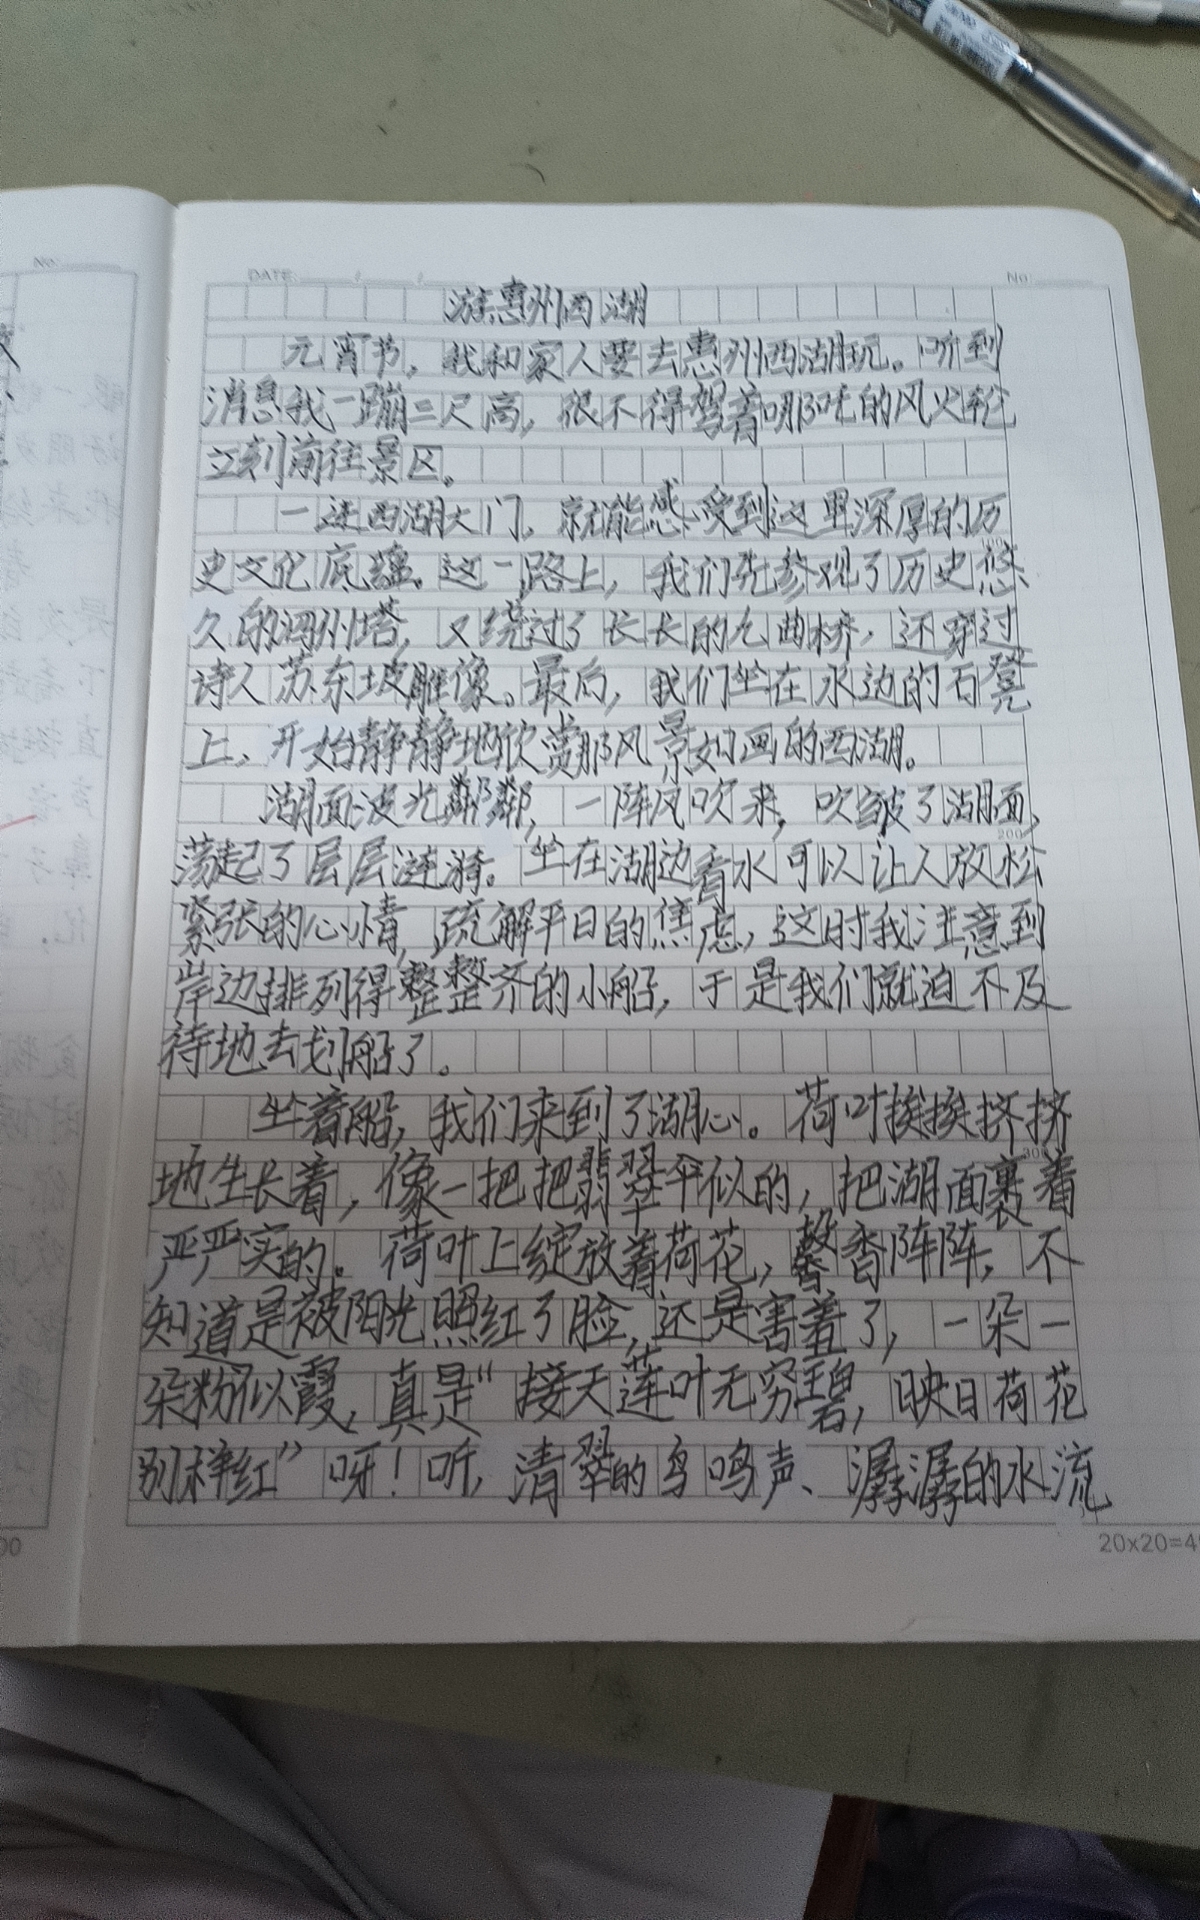 No:
DATE: / /
No:
游惠州西湖
元宵节，我和家人要去惠州西湖玩。听到
消息我一蹦三尺高，很不得驾着哪吒的风火轮
立刻前往景区。
一进西湖大门，就能感受到这里深厚的历
史文化底蕴。这一路上，我们先参观了历史悠
100
久的泗州塔，又绕过了长长的九曲桥，还穿过
诗人苏东坡雕像。最后，我们坐在水边的石凳
上，开始静静地欣赏那风景如画的西湖。
湖面波光粼粼，一阵风吹来，吹皱了湖面，
200
荡起了层层涟漪。坐在湖边看水可以让人放松
紧张的心情，疏解平日的焦虑，这时我注意到
岸边排列得整整齐的小船，于是我们就迫不及
待地去划船了。
坐着船，我们来到了湖心。荷叶挨挨挤挤
300
地生长着，像一把把翡翠伞似的，把湖面裹着
严严实的。荷叶上绽放着荷花，馨香阵阵，不
知道是被阳光照红了脸，还是害羞了，一朵一
朵粉似霞，真是“接天莲叶无穷碧，映日荷花
别样红”呀！听，清翠的鸟鸣声、潺潺的水流
20x20=4